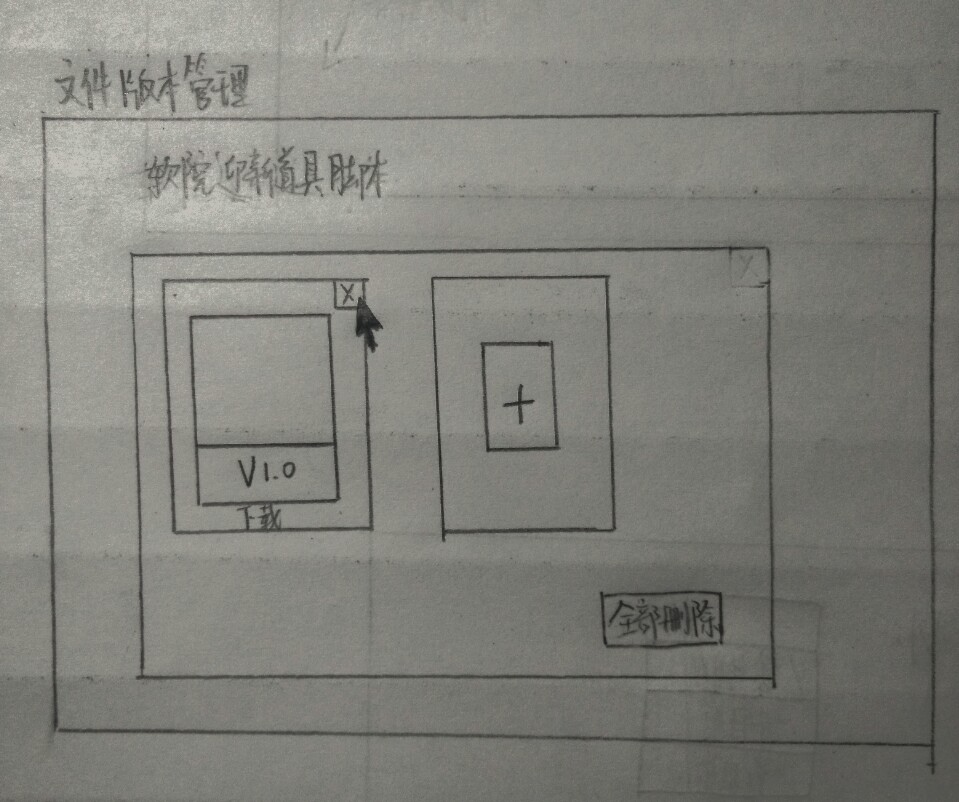 文件版本管理
软院迎新道具脚本
X
X
+
V1.0
下载
全部删除